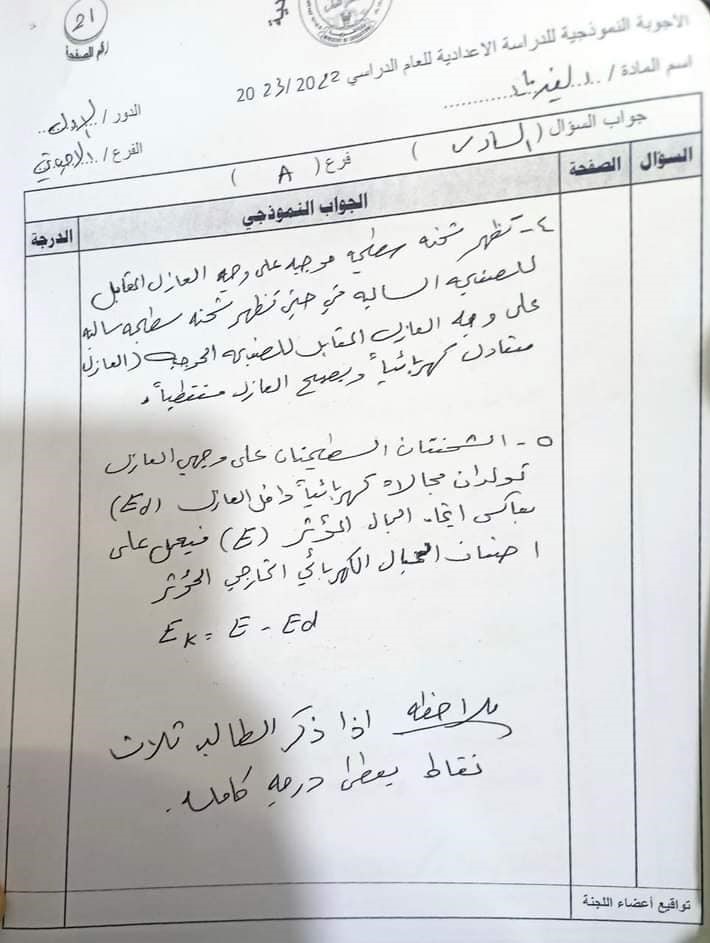 21
رقم الصفحة
الاجوبة النموذجية للدراسة الاعدادية للعام الدراسي 2023/2022
اسم المادة / الفيزياء
الدور / الاول
الفرع / الاحيائي
جواب السؤال ( السادس ) فرع ( A )
السؤال الصفحة الجواب النموذجي الدرجة
٤- تظهر شحنه سطحيه موجبه على وجه العازل المقابل
للصفيحه السالبه في حين تظهر شحنه سطحيه سالبه
على وجه العازل المقابل للصفيحه الموجبه (العازل
متعادل كهربائياً ويصبح العازل مستقطباً.
٥- الشحنتان السطحيتان على وجهي العازل
تولدان مجالاً كهربائياً داخل العازل (Ed)
يعاكس اتجاه المجال المؤثر (E) فيعمل على
اضعاف المجال الكهربائي الخارجي المؤثر
Ek = E - Ed
ملاحظه اذا ذكر الطالب ثلاث
نقاط يعطى درجه كامله.
تواقيع أعضاء اللجنة